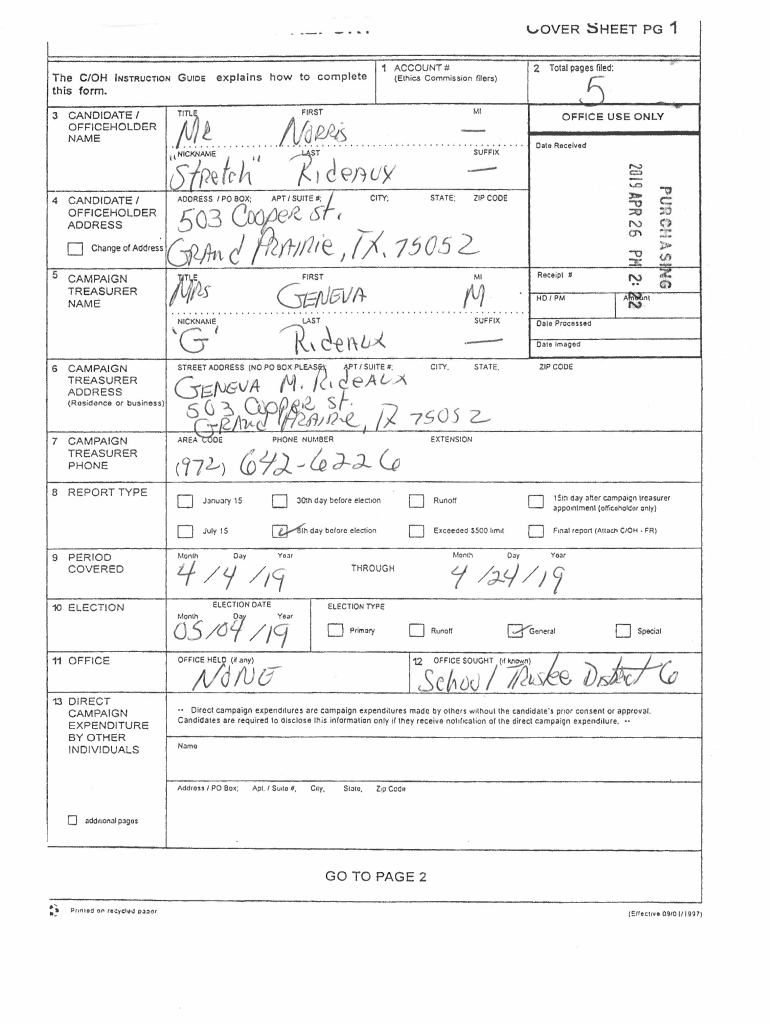 COVER SHEET PG 1
The C/OH INSTRUCTION GUIDE explains how to complete this form.
1 ACCOUNT #
(Ethics Commission filers)
2 Total pages filed:
5
3 CANDIDATE / OFFICEHOLDER NAME
TITLE FIRST MI
MR NORRIS —
NICKNAME LAST SUFFIX
"Stretch" RIDEAUX —
OFFICE USE ONLY
Date Received
PURCHASING
2019 APR 26 PM 2:22
4 CANDIDATE / OFFICEHOLDER ADDRESS
Change of Address
ADDRESS / PO BOX; APT / SUITE #; CITY; STATE; ZIP CODE
503 COOPER St.
GRAND PRAIRIE, TX. 75052
5 CAMPAIGN TREASURER NAME
TITLE FIRST MI
MRS GENEVA M
NICKNAME LAST SUFFIX
'G' RIDEAUX —
Receipt #
HD / PM Amount
Date Processed
Date Imaged
6 CAMPAIGN TREASURER ADDRESS
(Residence or business)
STREET ADDRESS (NO PO BOX PLEASE); APT / SUITE #; CITY; STATE; ZIP CODE
GENEVA M. RIDEAUX
503 COOPER St.
GRAND PRAIRIE, TX 75052
7 CAMPAIGN TREASURER PHONE
AREA CODE PHONE NUMBER EXTENSION
(972) 642-6226
8 REPORT TYPE
January 15 30th day before election Runoff 15th day after campaign treasurer appointment (officeholder only)
July 15 8th day before election Exceeded $500 limit Final report (Attach C/OH - FR)
9 PERIOD COVERED
Month Day Year THROUGH Month Day Year
4/4/19 4/24/19
10 ELECTION
ELECTION DATE
Month Day Year
05/04/19
ELECTION TYPE
Primary Runoff General Special
11 OFFICE
OFFICE HELD (if any)
NONE
12 OFFICE SOUGHT (if known)
School Trustee District 6
13 DIRECT CAMPAIGN EXPENDITURE BY OTHER INDIVIDUALS
additional pages
·· Direct campaign expenditures are campaign expenditures made by others without the candidate's prior consent or approval.
Candidates are required to disclose this information only if they receive notification of the direct campaign expenditure. ··
Name
Address / PO Box; Apt. / Suite #; City; State; Zip Code
GO TO PAGE 2
Printed on recycled paper
(Effective 09/01/1997)